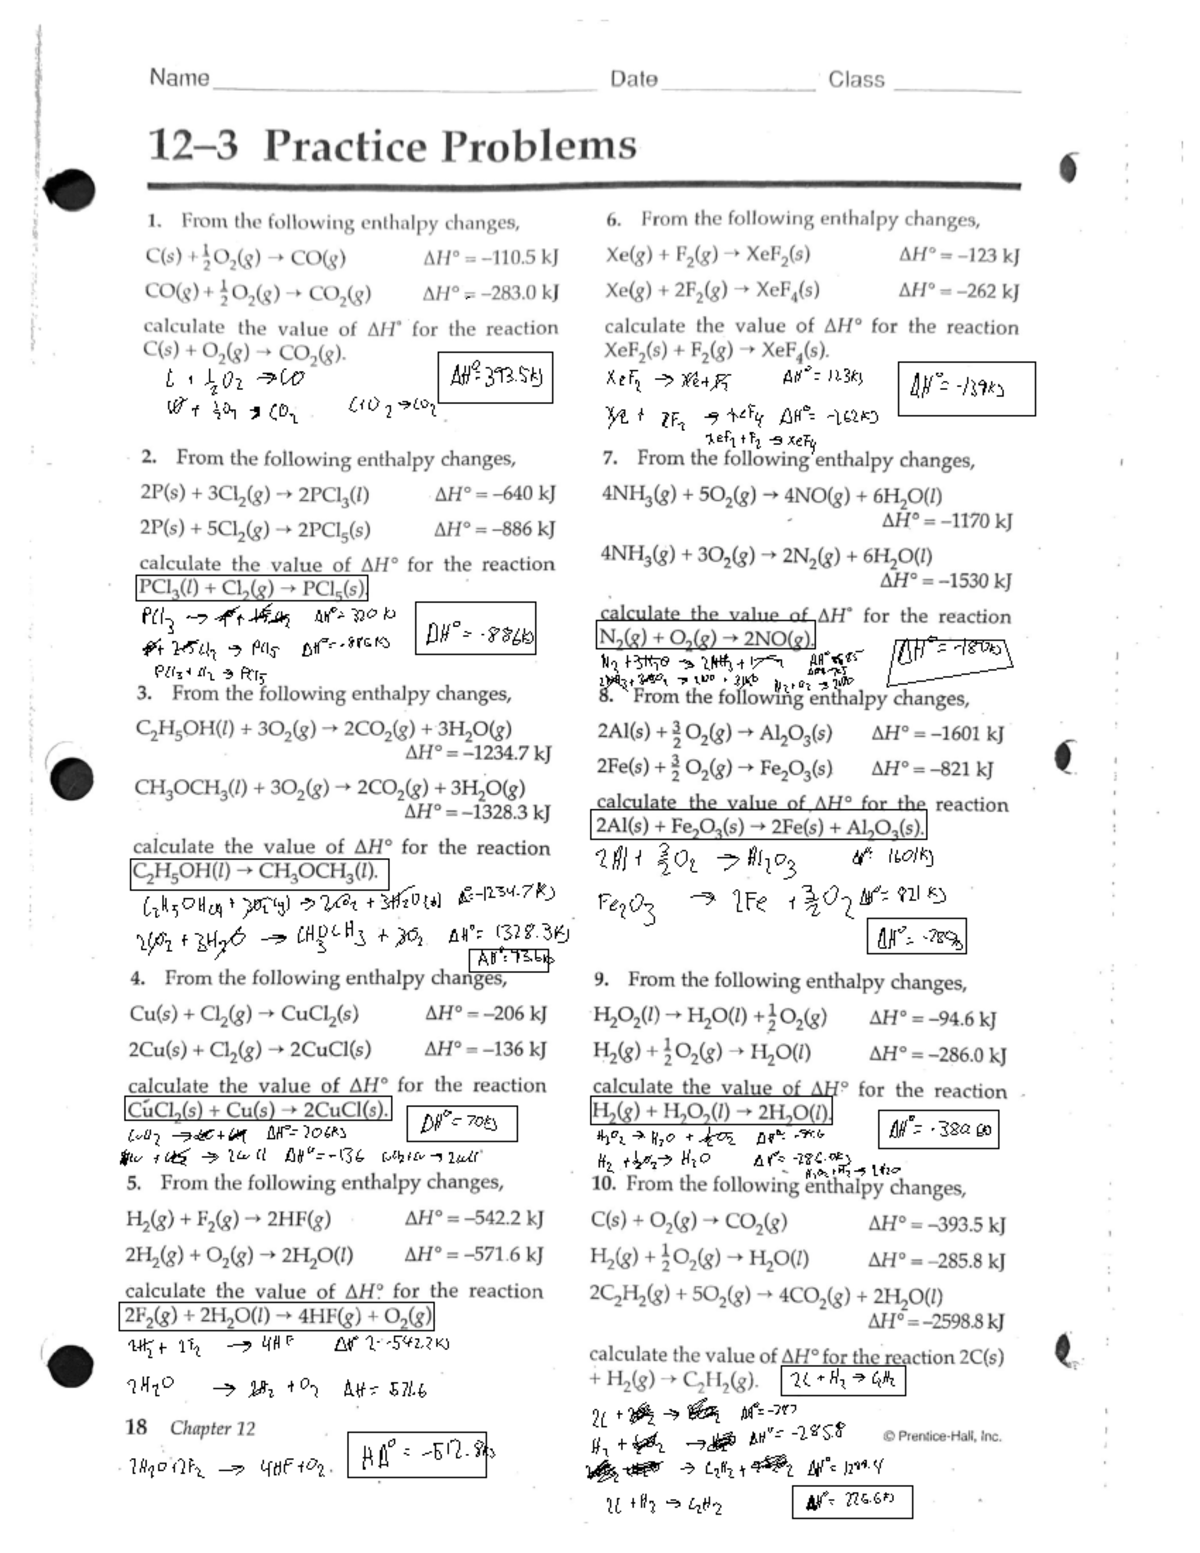 Name Date Class
12–3 Practice Problems
1. From the following enthalpy changes,
C(s) + ½O₂(g) → CO(g) ΔH° = –110.5 kJ
CO(g) + ½O₂(g) → CO₂(g) ΔH° = –283.0 kJ
calculate the value of ΔH° for the reaction
C(s) + O₂(g) → CO₂(g).
ΔH°=393.5kJ
C + ½O₂ → CO
CO + ½O₂ → CO₂ C+O₂ → CO₂
2. From the following enthalpy changes,
2P(s) + 3Cl₂(g) → 2PCl₃(l) ΔH° = –640 kJ
2P(s) + 5Cl₂(g) → 2PCl₅(s) ΔH° = –886 kJ
calculate the value of ΔH° for the reaction
PCl₃(l) + Cl₂(g) → PCl₅(s).
PCl₃ → ΔH°= 320 kJ
ΔH° = -886kJ
→ PCl₅ ΔH°=
PCl₃ + Cl₂ → PCl₅
3. From the following enthalpy changes,
C₂H₅OH(l) + 3O₂(g) → 2CO₂(g) + 3H₂O(g)
ΔH° = –1234.7 kJ
CH₃OCH₃(l) + 3O₂(g) → 2CO₂(g) + 3H₂O(g)
ΔH° = –1328.3 kJ
calculate the value of ΔH° for the reaction
C₂H₅OH(l) → CH₃OCH₃(l).
C₂H₅OH(l) + 3O₂(g) → 2CO₂ + 3H₂O(g) -1234.7kJ
2CO₂ + 3H₂O → CH₃OCH₃ + 3O₂ ΔH°= 1328.3kJ
ΔH°=93.6kJ
4. From the following enthalpy changes,
Cu(s) + Cl₂(g) → CuCl₂(s) ΔH° = –206 kJ
2Cu(s) + Cl₂(g) → 2CuCl(s) ΔH° = –136 kJ
calculate the value of ΔH° for the reaction
CuCl₂(s) + Cu(s) → 2CuCl(s).
ΔH°= 70kJ
CuCl₂ → ΔH°= 206kJ
→ 2CuCl ΔH°=-136 CuCl₂+Cu → 2CuCl
5. From the following enthalpy changes,
H₂(g) + F₂(g) → 2HF(g) ΔH° = –542.2 kJ
2H₂(g) + O₂(g) → 2H₂O(l) ΔH° = –571.6 kJ
calculate the value of ΔH° for the reaction
2F₂(g) + 2H₂O(l) → 4HF(g) + O₂(g)
2H₂ + 2F₂ → 4HF ΔH° 2·-542.2kJ
2H₂O → 2H₂ + O₂ ΔH= 571.6
18 Chapter 12
2H₂O+2F₂ → 4HF+O₂.
HΔ° = -512.8kJ
6. From the following enthalpy changes,
Xe(g) + F₂(g) → XeF₂(s) ΔH° = –123 kJ
Xe(g) + 2F₂(g) → XeF₄(s) ΔH° = –262 kJ
calculate the value of ΔH° for the reaction
XeF₂(s) + F₂(g) → XeF₄(s).
XeF₂ → Xe+F₂ ΔH°= 123kJ
ΔH°= -139kJ
Xe + 2F₂ → XeF₄ ΔH°= -262kJ
XeF₂+F₂ → XeF₄
7. From the following enthalpy changes,
4NH₃(g) + 5O₂(g) → 4NO(g) + 6H₂O(l)
ΔH° = –1170 kJ
4NH₃(g) + 3O₂(g) → 2N₂(g) + 6H₂O(l)
ΔH° = –1530 kJ
calculate the value of ΔH° for the reaction
N₂(g) + O₂(g) → 2NO(g).
ΔH°= -180kJ
N₂ + 3H₂O → 2NH₃ +
N₂+O₂ → 2NO
8. From the following enthalpy changes,
2Al(s) + 3/2 O₂(g) → Al₂O₃(s) ΔH° = –1601 kJ
2Fe(s) + 3/2 O₂(g) → Fe₂O₃(s) ΔH° = –821 kJ
calculate the value of ΔH° for the reaction
2Al(s) + Fe₂O₃(s) → 2Fe(s) + Al₂O₃(s).
2Al + 3/2 O₂ → Al₂O₃ 1601kJ
Fe₂O₃ → 2Fe + 3/2 O₂ ΔH°= 821 kJ
ΔH°=
9. From the following enthalpy changes,
H₂O₂(l) → H₂O(l) + ½O₂(g) ΔH° = –94.6 kJ
H₂(g) + ½O₂(g) → H₂O(l) ΔH° = –286.0 kJ
calculate the value of ΔH° for the reaction
H₂(g) + H₂O₂(l) → 2H₂O(l).
H₂O₂ → H₂O + ½O₂ ΔH°= -94.6
H₂ + ½O₂ → H₂O ΔH°= -286.0kJ
H₂O₂+H₂ → 2H₂O
10. From the following enthalpy changes,
C(s) + O₂(g) → CO₂(g) ΔH° = –393.5 kJ
H₂(g) + ½O₂(g) → H₂O(l) ΔH° = –285.8 kJ
2C₂H₂(g) + 5O₂(g) → 4CO₂(g) + 2H₂O(l)
ΔH° = –2598.8 kJ
calculate the value of ΔH° for the reaction 2C(s)
+ H₂(g) → C₂H₂(g). 2C + H₂ → C₂H₂
2C + → ΔH°=-787
H₂ + → ΔH°= -285.8
© Prentice-Hall, Inc.
→ C₂H₂ + ΔH°= 1299.4
2C + H₂ → C₂H₂
ΔH°= 226.6kJ